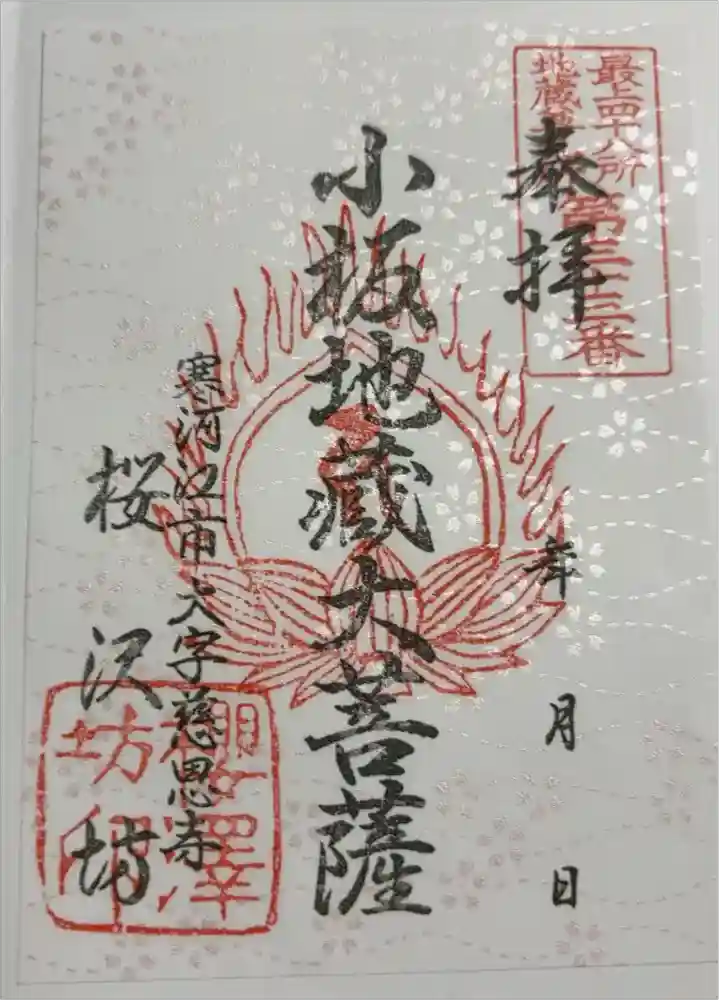 最上四十八所
地蔵尊
第三十三番
奉拝
年 月 日
小板地蔵大菩薩
寒河江市大字慈恩寺
桜沢坊
櫻澤
坊印